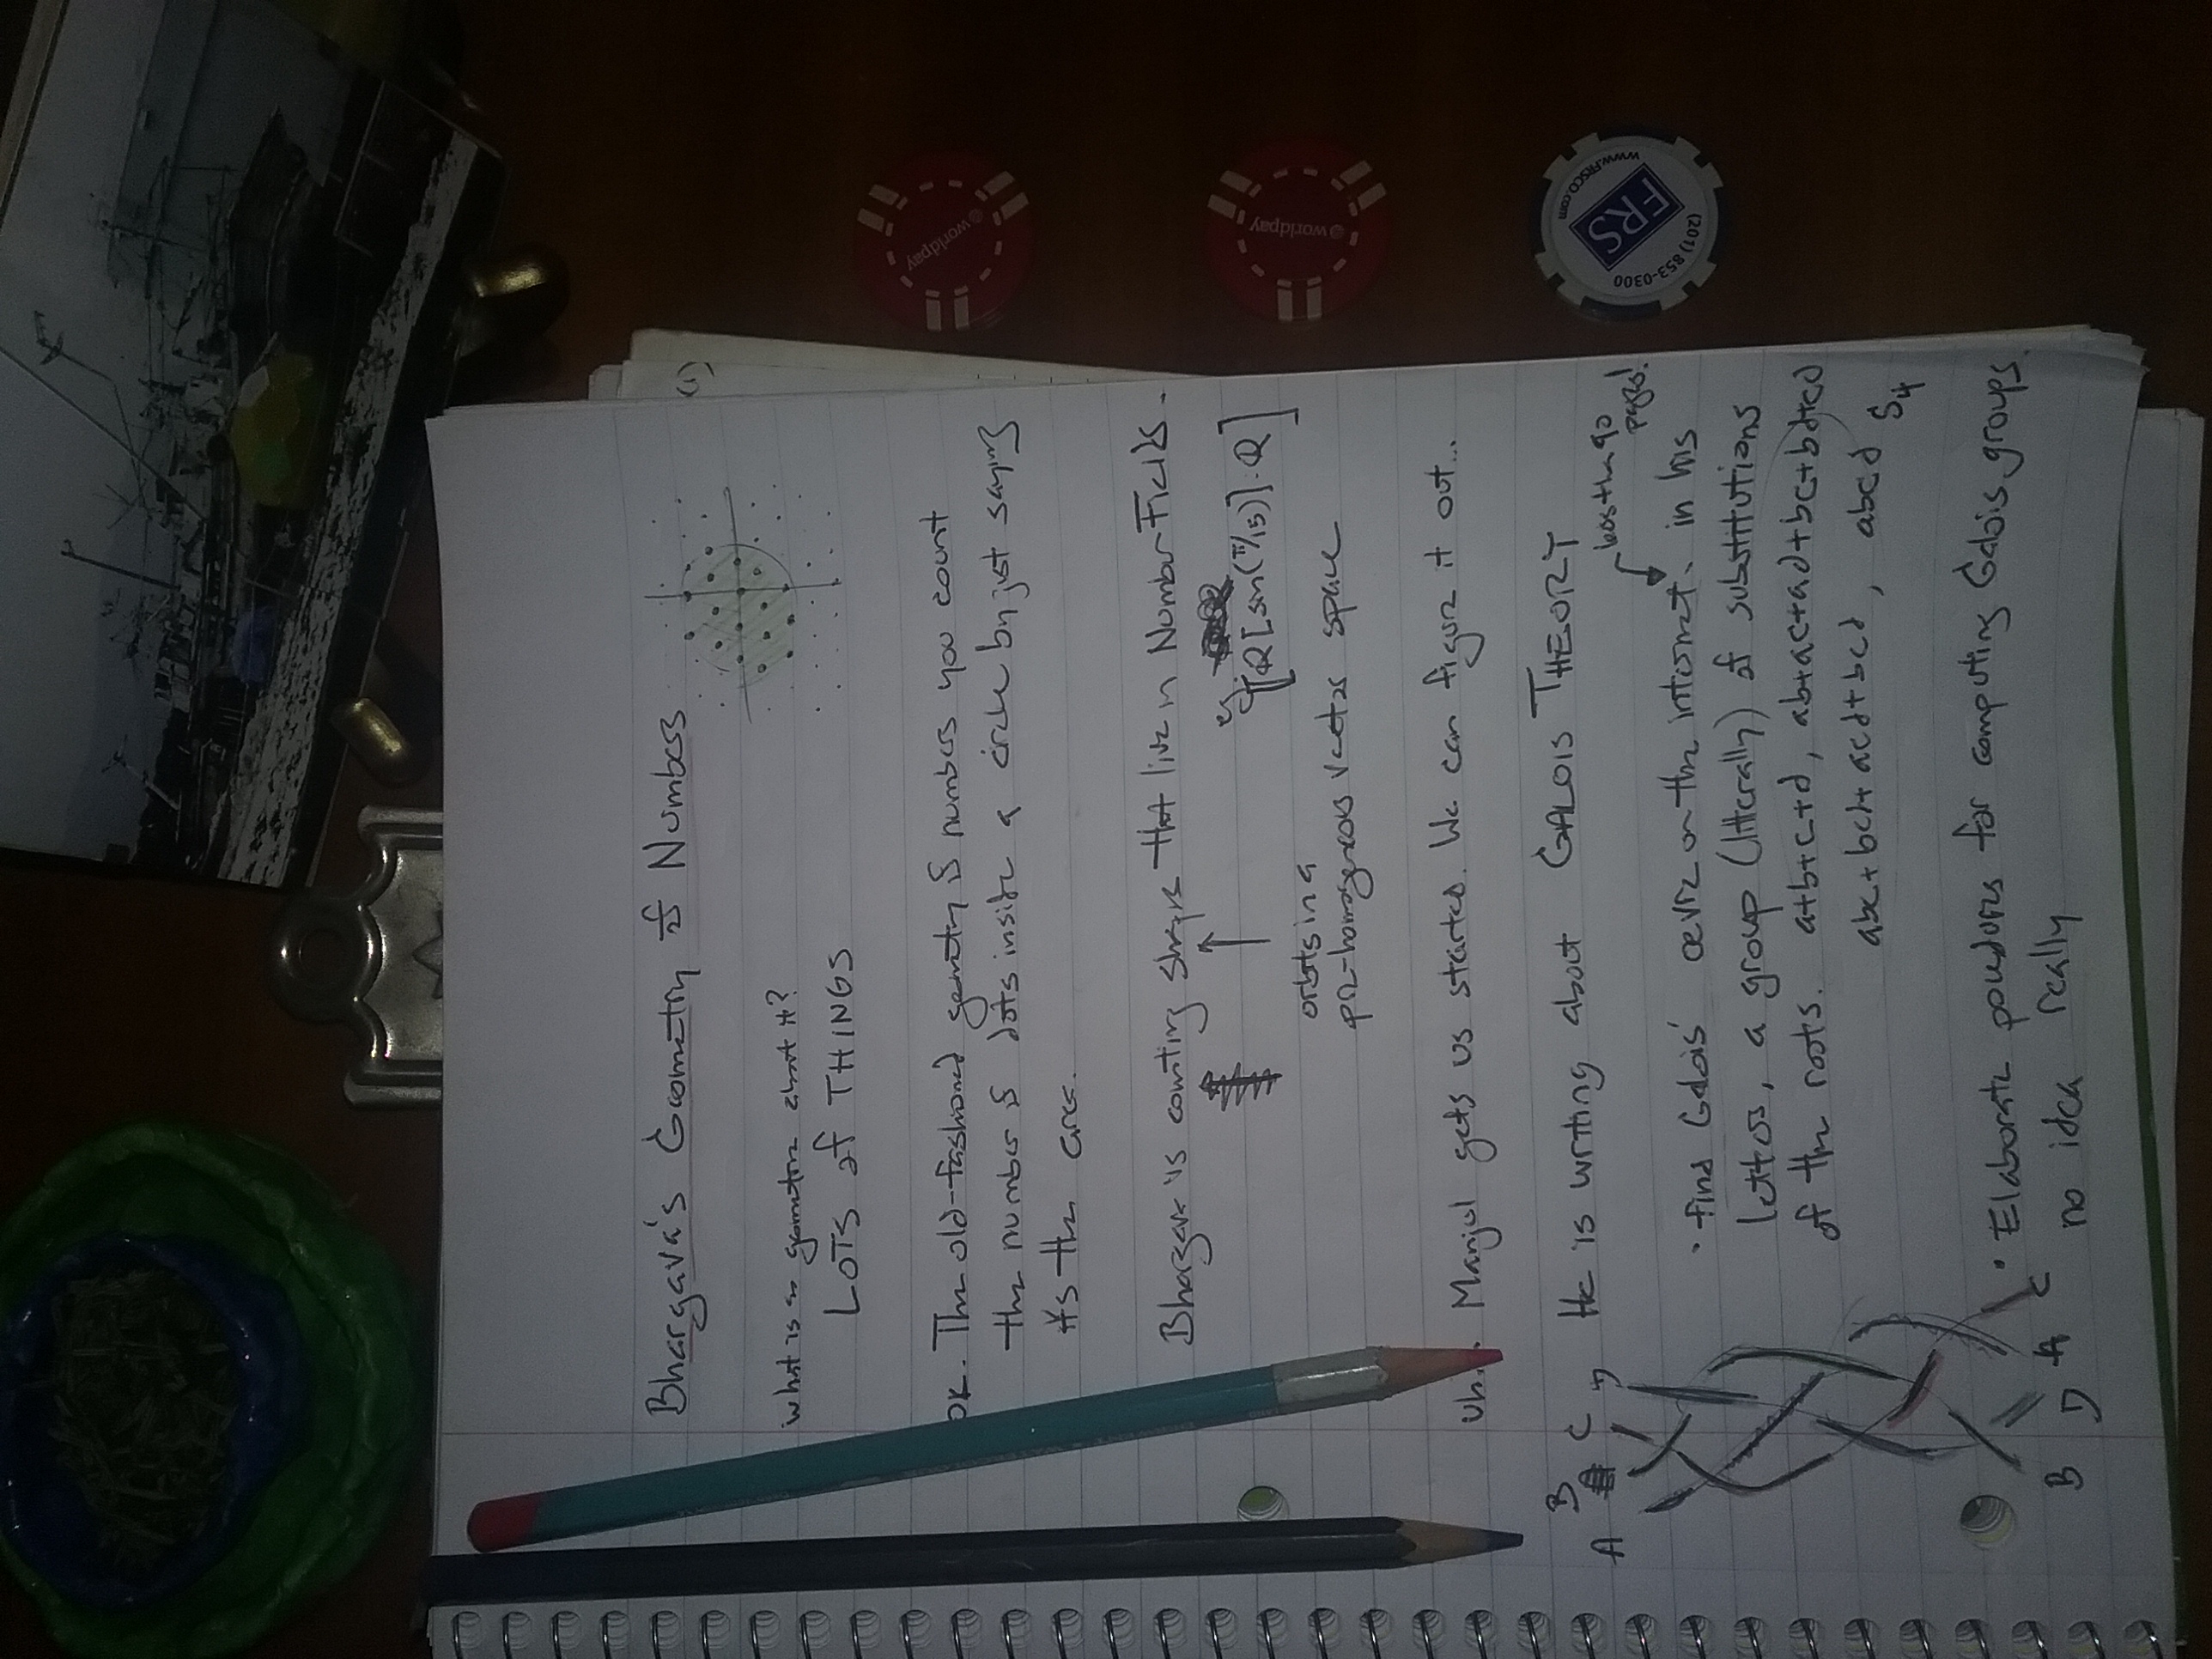 Bhargava's Geometry of Numbers
(1)
what is so geometric about it?
LOTS of THINGS
OK. The old-fashioned geometry of numbers you count
the number of dots inside a circle by just saying
it's the area.
Bhargava is counting shapes that live in Number Fields.
eg. [Q[sin(π/15)]:Q]
orbits in a
pre-homogeneous vector space
uh... Manjul gets us started. We can figure it out...
He is writing about GALOIS THEORY
less than 90
pages!
• find Galois' oeuvre on the internet. in his
letters, a group (literally) of substitutions
of the roots. a+b+c+d, ab+ac+ad+bc+bd+cd
abc+bcd+acd+bcd, abcd S4
• Elaborate procedures for computing Galois groups.
no idea really
A B C D
B D A C
worldpay
worldpay
FRS
www.FRSCO.com
(201) 853-0300